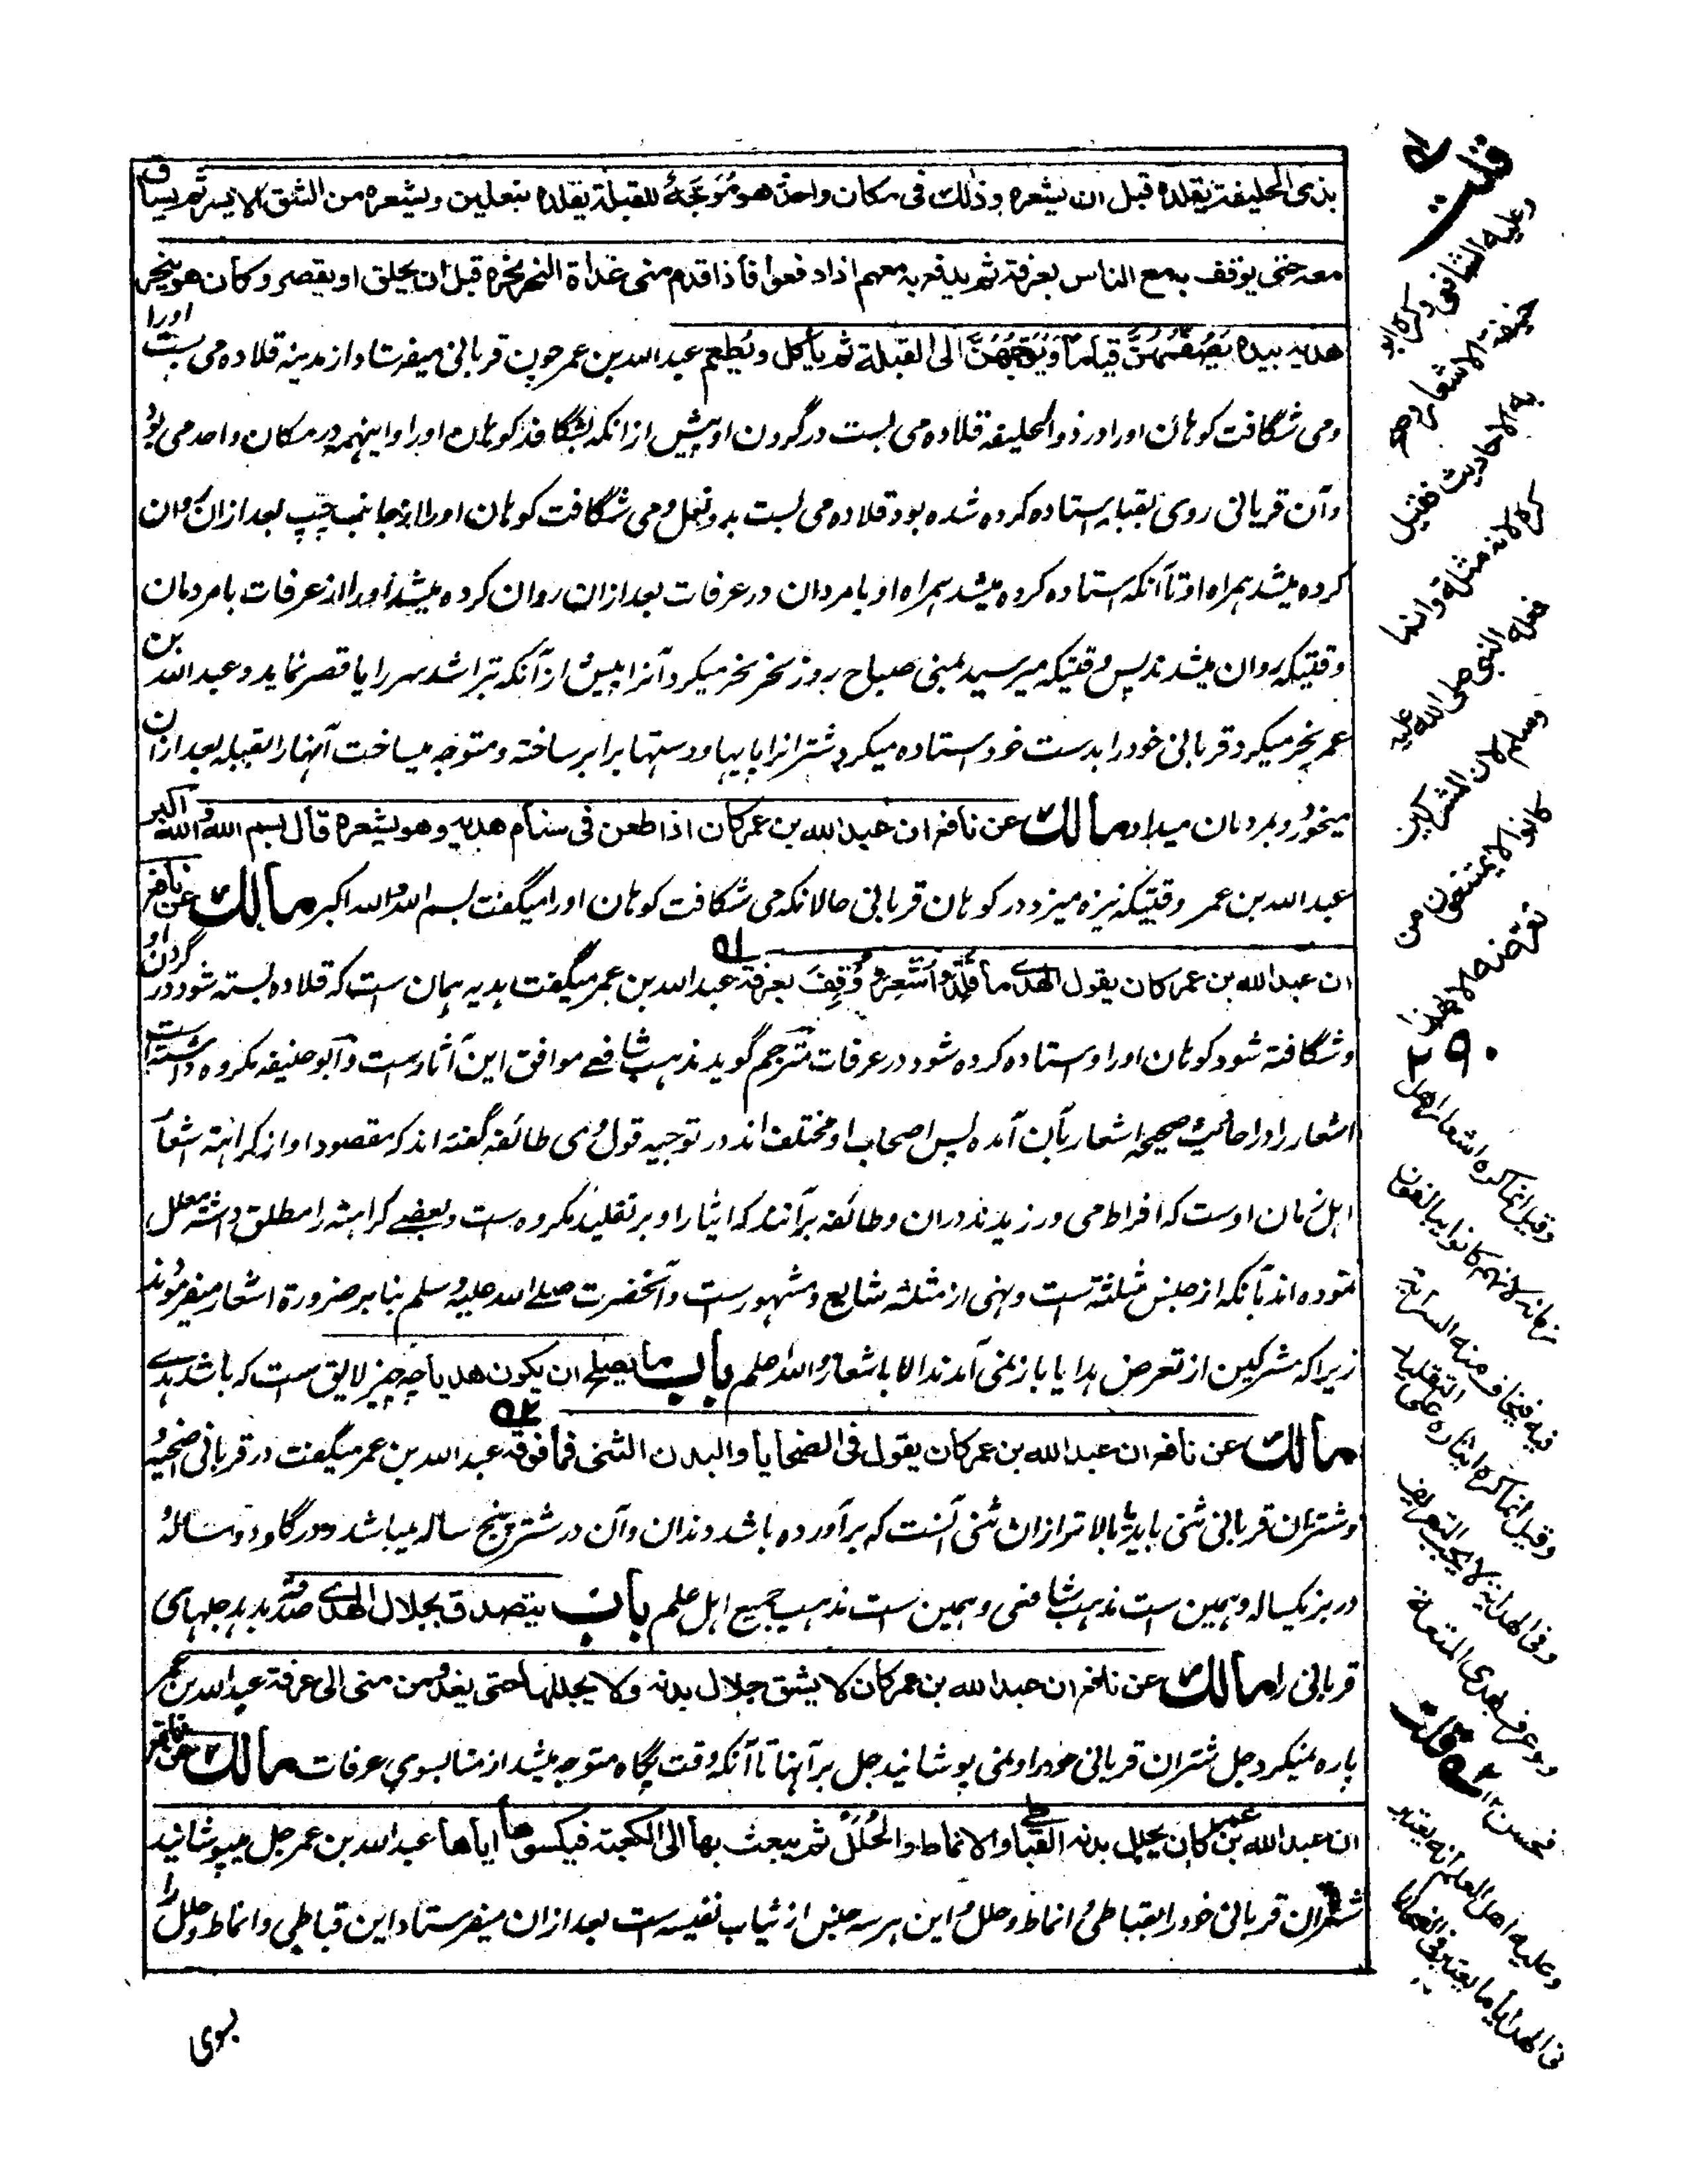 بذی الحلیفة یقلده قبل ان یشعره وذلك فی مکان واحد هو مُوَجَّهٌ للقبلة یقلده بنعلین ویشعره من الشق الایسر ثم یساق
معه حتی یوقف به مع الناس بعرفة ثم یدفع به معهم اذا دفعوا فاذا قدم منی غداة النحر نحره قبل ان یحلق او یقصر وکان هو ینحر
هدیه بیده یَصُفُّهُنَّ قیاما وَیُوَجِّهُهُنَّ الی القبلة ثم یأکل ویُطعم عبد الله بن عمر چون قربانی میفرستاد از مدینه قلاده می بست اورا
ومی شگافت کوہان اورا در ذو الحلیفه قلاده می بست در گردن او پیش از انکه بشگافد کوہان اورا و اینهمه در مکان واحد می بود
وآن قربانی روی بقبله ایستاده کرده شده بود قلاده می بست بدو نعل و می شگافت کوہان اورا از جانب چپ بعد ازان روان
کرده میشد ہمراه او تا آنکه استاده کرده میشد ہمراه او بامردان در عرفات بعد ازان روان کرده میشد اورا از عرفات بامردمان
وقتیکه روان میشدند پس وقتیکه میرسید بمنی صباح روز نحر نحر میکرد آنرا پیش از آنکه بتراشد سر را یا قصر نماید و عبد الله بن
عمر نحر میکرد قربانی خود را بدست خود استاده میکرد شترانرا پایها و دستها برابر ساخته و متوجه میساخت آنهارا بقبله بعد ازان
میخورد و بمردمان میداد مالك عن نافع ان عبد الله بن عمر کان اذا طعن فی سنام هدیه وهو یشعره قال بسم الله والله اکبر
عبد الله بن عمر وقتیکه نیزه میزد در کوہان قربانی حالانکه می شگافت کوہان اورا میگفت بسم الله والله اکبر مالك عن نافع
ان عبد الله بن عمر کان یقول الهدی ما قُلِّدَ واُشْعِرَ ووُقِفَ بعرفة عبد الله بن عمر میگفت ہدیه ہمان ست که قلاده بسته شود در گردن او
وشگافته شود کوہان اورا و استاده کرده شود در عرفات مترجم گوید مذہب شافعی موافق این آثارست و ابو حنیفه مکروه داشته است
اشعار را و احادیث صحیحه اشعار بآن آمده پس اصحاب او مختلف اند در توجیه قول وی طائفه گفته اند که مقصود او از کراہته اشعار
اہل زمان اوست که افراط می ورزیدند دران و طائفه برآنند که ایثار او بر تقلید مکروه ست و بعضے کراہته را مطلق داشته معلل
نموده اند بآنکه از جنس مثلثه ست و نہی از مثلثه شایع و مشہورست و آنحضرت صلے الله علیه وسلم بنا بر ضرورة اشعار میفرمودند
زیرا که مشرکین از تعرض ہدایا باز نمی آمدند الا باشعار والله اعلم باب ما یصلح ان یکون هدیا چه چیز لایق ست که باشد ہدی
مالك عن نافع ان عبد الله بن عمر کان یقول فی الضحایا والبدن الثنی فما فوقه عبد الله بن عمر میگفت در قربانی اضحیه
وشتران قربانی ثنی باید یا بالا تر ازان ثنی آنست که برآورده باشد دندان و آن در شتر پنج ساله میباشد و در گاو دو ساله و
در بز یکساله و ہمین ست مذہب شافعی و ہمین ست مذہب جمیع اہل علم باب یتصدق بجلال الهدی صدقه بدہد جلہای
قربانی را مالك عن نافع ان عبد الله بن عمر کان لا یشق جلال بدنه ولا یجللها حتی یغدو من منی الی عرفة عبد الله بن عمر
پاره نمیکرد جل شتران قربانی خود را و نمی پوشانید جل بر آنها تا آنکه وقت پگاه متوجه میشد از منا بسوی عرفات مالك عن نافع
ان عبد الله بن عمر کان یجلل بدنه القباطی والانماط والحُلَلَ ثم یبعث بها الی الکعبة فیکسوها ایاها عبد الله بن عمر جل میپوشانید
شتران قربانی خود را بقباطی و انماط و حلل و این ہر سه جنس از ثیاب نفیسه ست بعد ازان میفرستاد این قباطی و انماط و حلل را
بسوی
قلت
وعلیه الشافعی وکره ابو
حنیفة الاشعار وصح
به الاحادیث فقیل
کره لانه مثلة وانما
فعله النبی صلی الله علیه
وسلم لان المشرکین
کانوا لا یمتنعون من
تعرضه الا بهذا
۲۹۰
وقیل انما کره اشعار اهل
زمانه لانهم کانوا یبالغون
فیه فیخاف منه السرایة
وقیل انما کره ایثاره علی التقلید
وفی الهدایة لا یجب التعریف
ولو عرف بهدی المتعة
فحسن ۱۲ قلت
وعلیه اهل العلم انه یعتبر
فی الهدایا ما یعتبر فی الضحایا